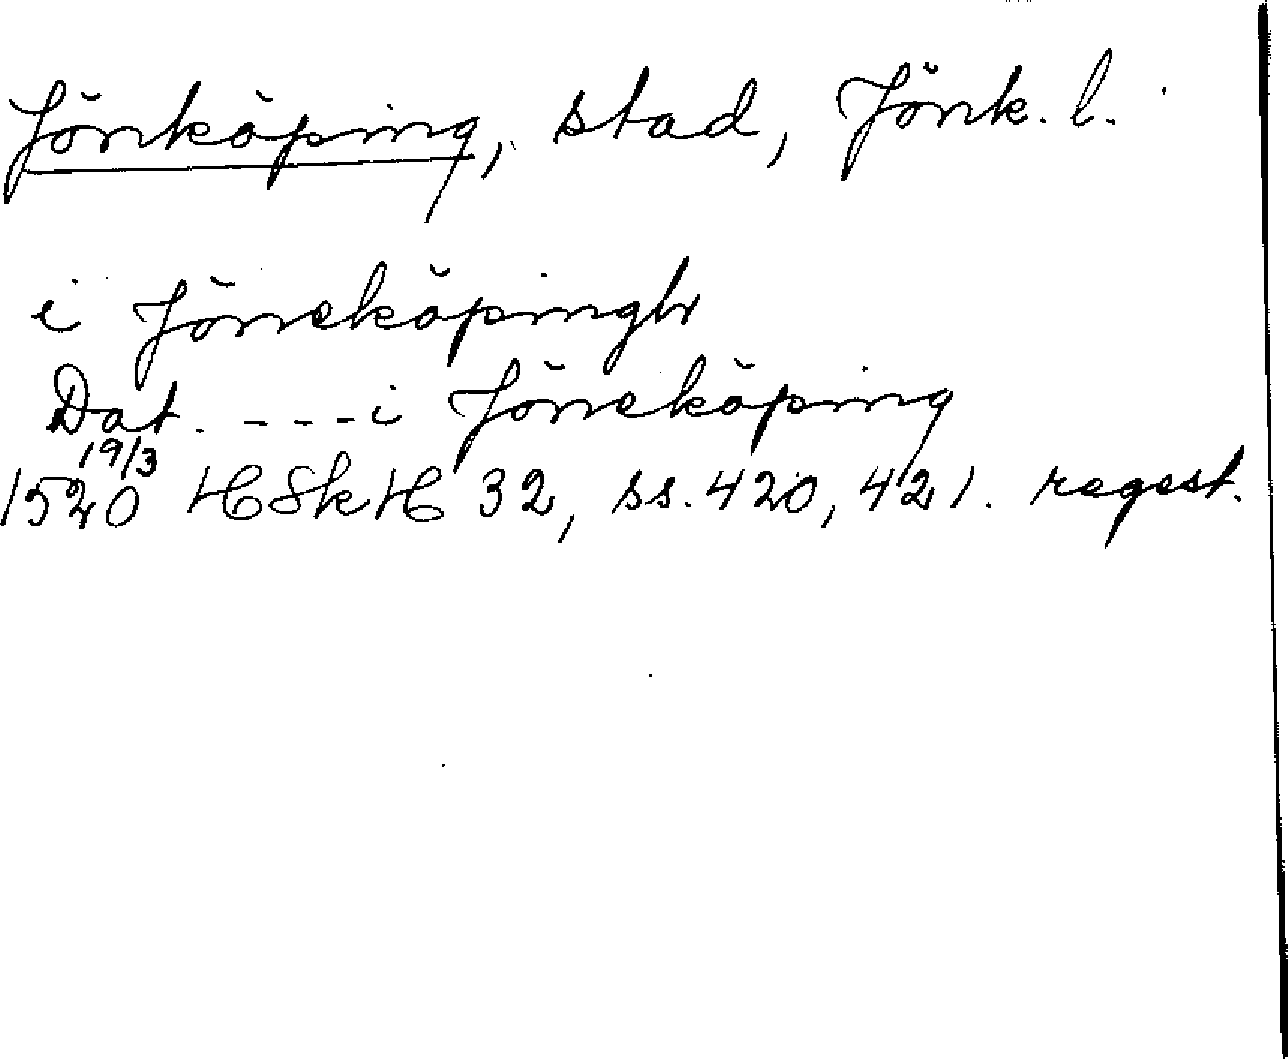 Jönköping, stad, Jönk. l.
i Jöneköpingh
Dat. ---i Jöneköping
19/3
1520 HSkH 32, ss. 420, 421. regest.